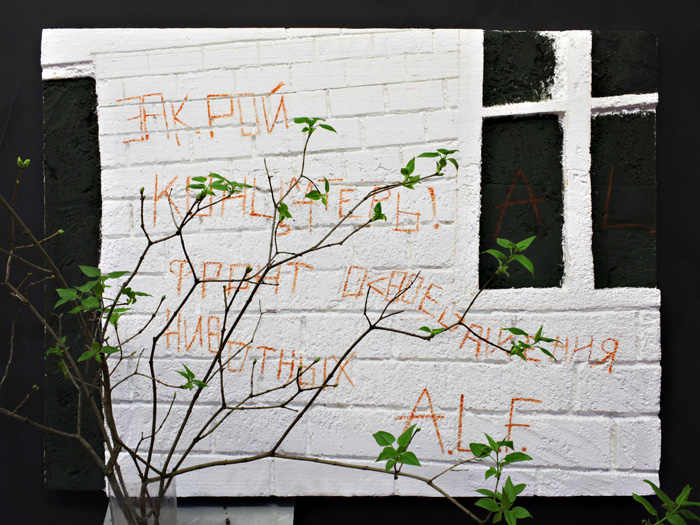 ЗАКРОЙ
КОНЦЛАГЕРЬ!
A. L.
ФРОНТ ОСВОБОЖДЕНИЯ
ЖИВОТНЫХ
A.L.F.